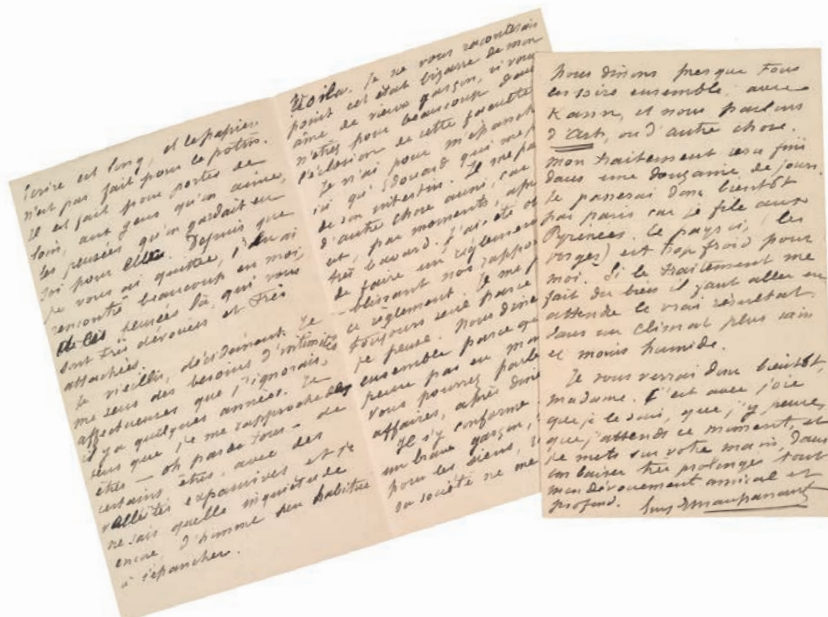 écrire est long, et le papier
n'est pas fait pour le potin.
Il est fait pour porter de
loin, aux gens qu'on aime,
les pensées qu'on gardait en
soi pour elles. Depuis que
je vous ai quittée, j'en ai
rencontré beaucoup en moi,
de ces pensées là, qui vous
sont très dévouées et très
attachées.
Je vieillis, décidément. Je
me sens des besoins d'intimités
affectueuses que j'ignorais,
il y a quelques années. Je
sens que je me rapproche des
êtres — oh pas de tous — de
certains êtres, avec des
velléités expansives et je
ne sais quelle inquiétude
encore, d'homme peu habitué
à s'épancher.
Voilà. Je ne vous raconterais
point cet état bizarre de mon
âme de vieux garçon, si vous
n'étiez pour beaucoup dans
l'éclosion de cette faculté
Je n'ai pour m'épancher
ici qu'Edouard qui me p
de son intestin. Il me pa
d'autre chose aussi, car
est, par moments, ap
très bavard. J'ai été ob
de faire un règlement
-blissant nos rappor
ce règlement. Je me p
toujours seul parce
je pense. Nous dine
ensemble parce que
pense pas en man
vous pourrez parle
affaires, après dine
Il s'y conforme
un brave garçon,
pour les siens,
sa société ne me
Nous dinons presque tous
les soirs ensemble, avec
Kann, et nous parlons
d'Art, ou d'autre chose.
Mon traitement sera fini
dans une douzaine de jours.
Je passerai donc bientôt
par Paris car je file aux
Pyrénées. Le pays ici, (les
Vosges) est trop froid pour
moi. Si le traitement me
fait du bien il faut aller en
attendre le vrai résultat
dans un climat plus sain
et moins humide.
Je vous verrai donc bientôt,
madame. C'est avec joie
que je le sais, que j'y pense,
que j'attends ce moment, et
je mets sur votre main, dans
un baiser très prolongé, tout
mon dévouement amical et
profond. Guy de Maupassant